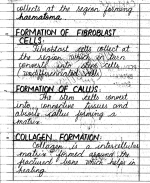 collects at the region forming
haematoma.
FORMATION OF FIBROBLAST
CELLS:
Fibroblast cells collect at
the region which in turn
converts into stem cells
(undifferentiated cells)
FORMATION OF CALLUS:
The stem cells convert
into connective tissues and
absorbs callus forming a
matrix.
COLLAGEN FORMATION:
Collagen is a intercellular
matrix formed around the
fractured bone which helps in
healing.